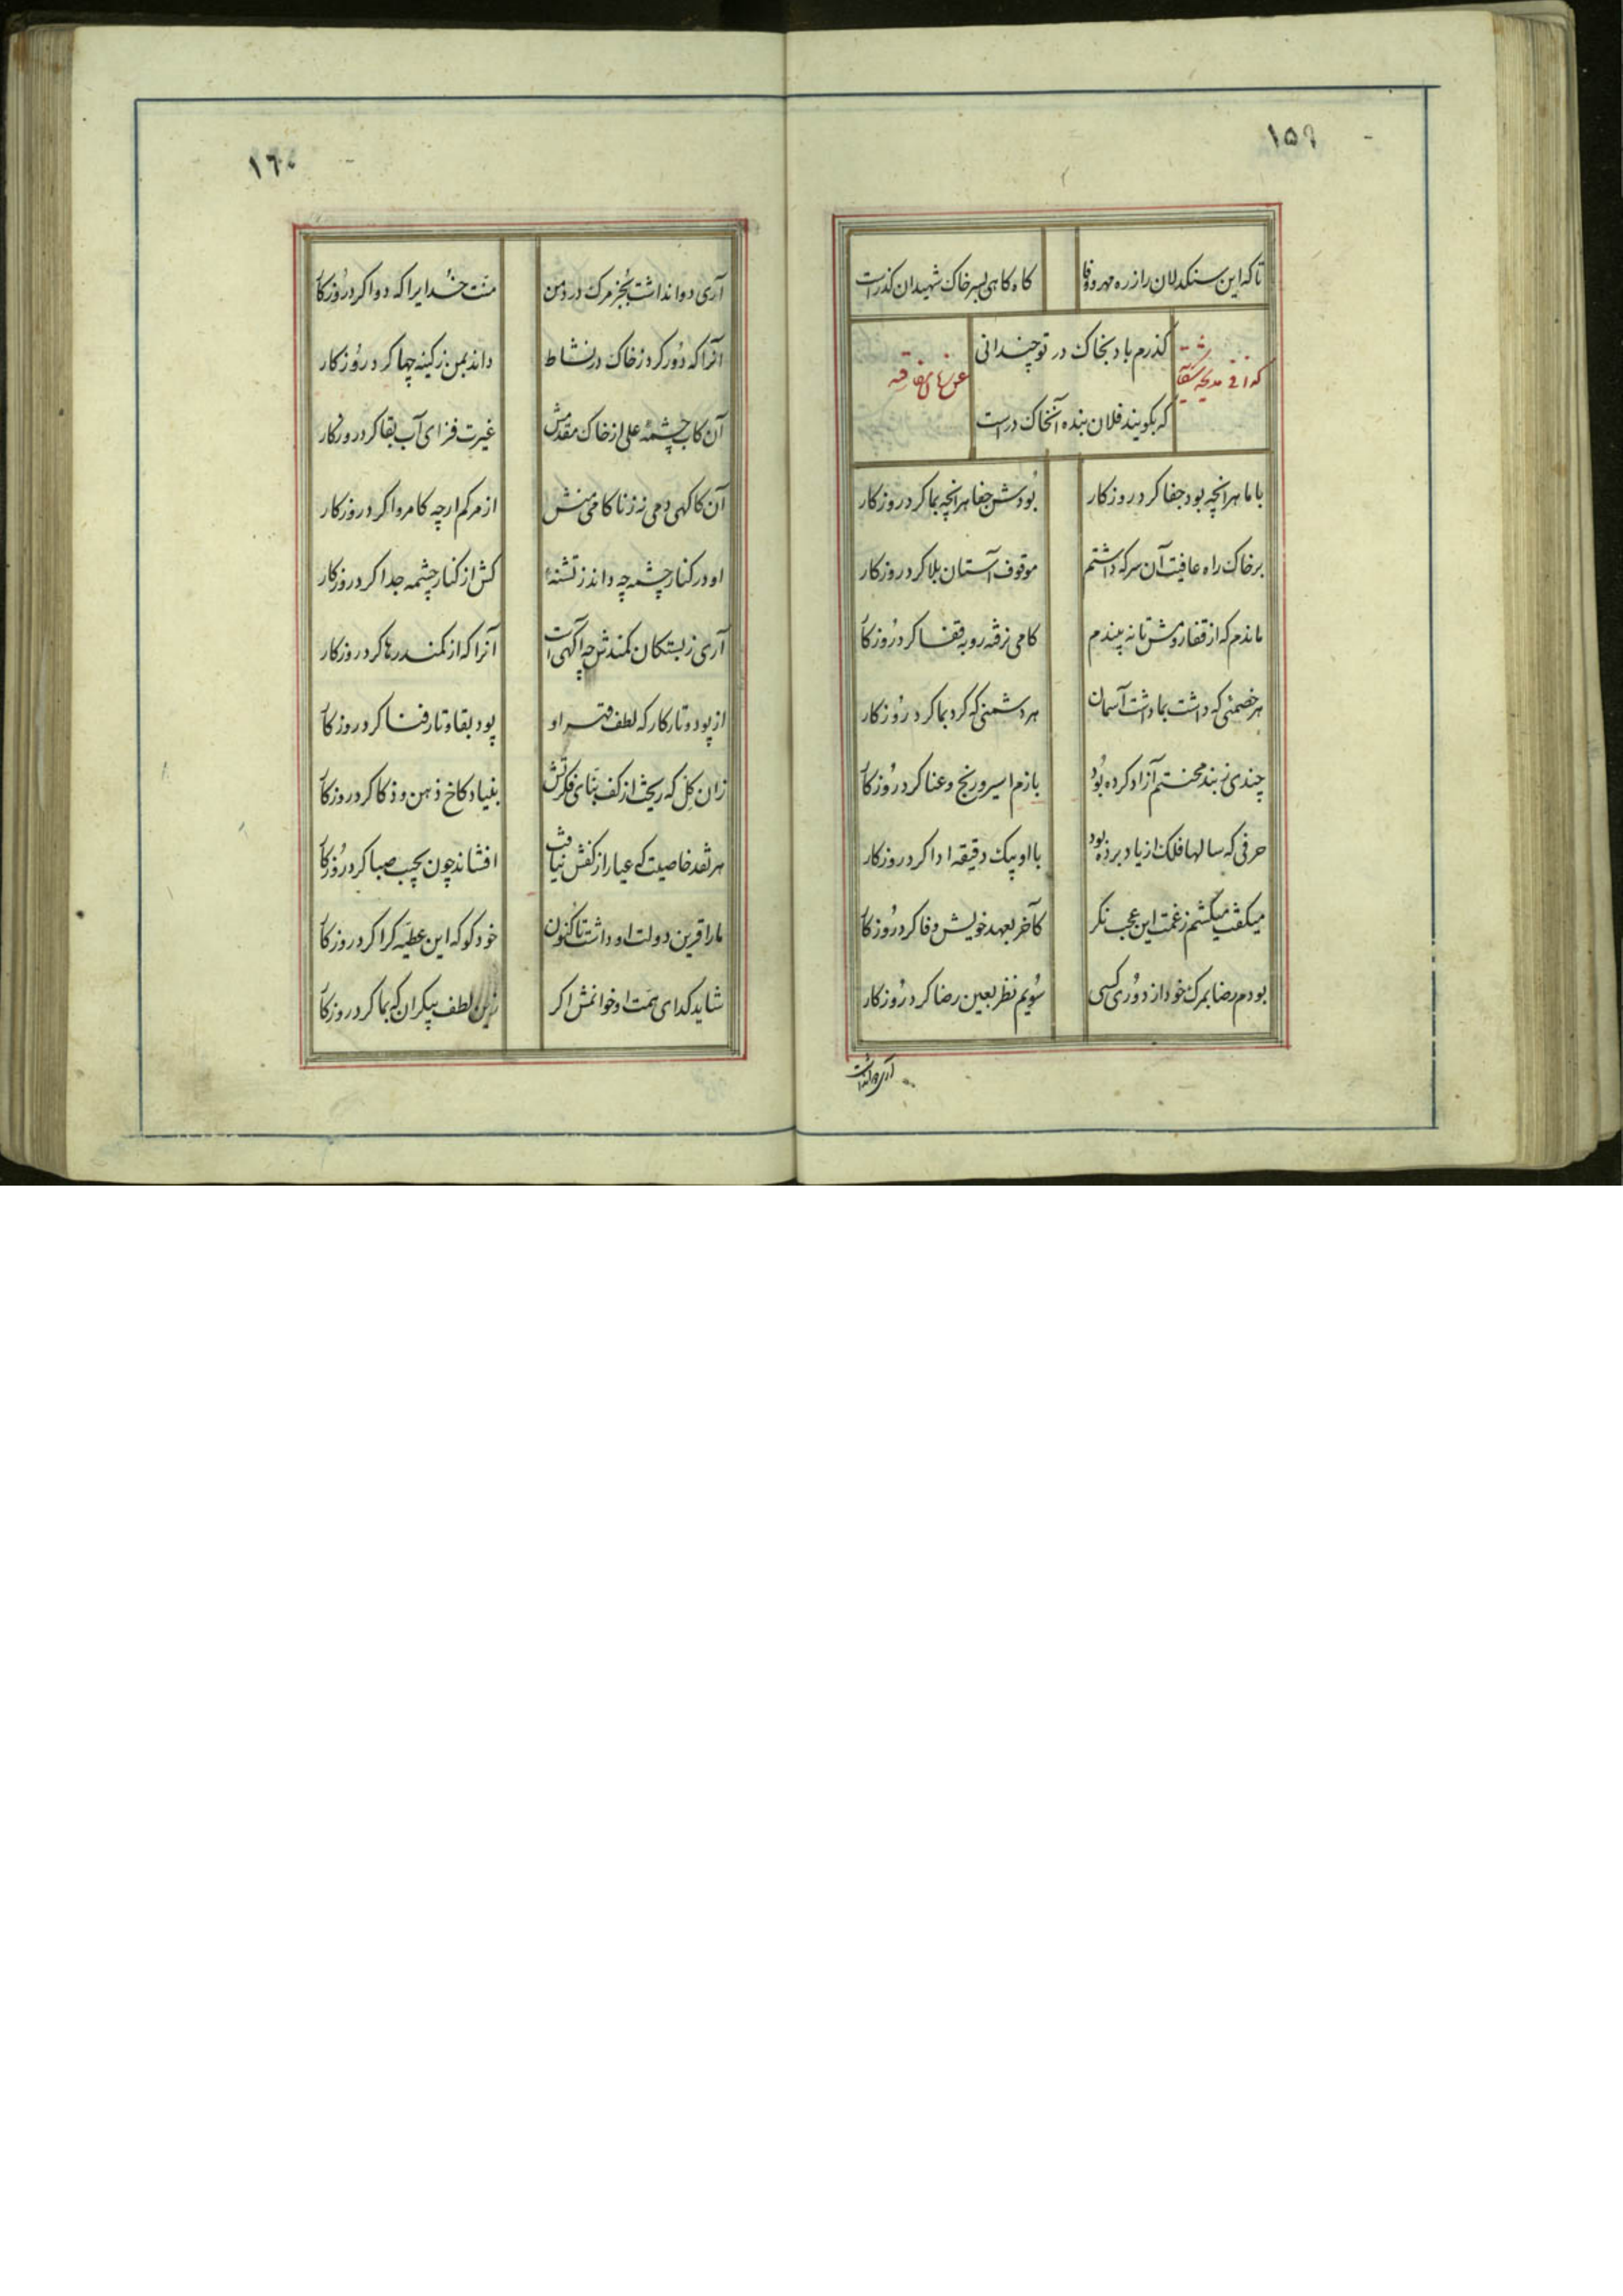 ۱۵۹
تا که این سنکدلان را ز ره مهر و وفا
کاه کاهی بسر خاک شهیدان کذر است
کذرم باد بخاک در تو چندانی
که بکویند فلان بنده آنخاک در است
با ما هر انچه بود جفا کرد روزکار
بودش جفا هر انچه بما کرد روزکار
بر خاک راه عافیت آن سر که داشتم
موقوف آستان بلا کرد روزکار
ماندم که از قفا روش تا نه بیندم
کامی نرفته رو به قفا کرد روزکار
هر خصمئی که داشت بما داشت آسمان
هر دشمنی که کرد بما کرد روزکار
چندی ز بند محنتم آزاد کرده بود
بازم اسیر و رنج و عنا کرد روزکار
حرفی که سالها فلک از یاد برده بود
با او بیک دقیقه ادا کرد روزکار
میکفت میکشم ز غمت این عجب نکر
کآخر بعهد خویش وفا کرد روزکار
بودم رضا بمرک خود از دوری کسی
سویم نظر بعین رضا کرد روزکار
آری دوا نداشت
۱٦۰
آری دوا نداشت بجز مرک درد من
منت خدایرا که دوا کرد روزکار
آنرا که دور کرد ز خاک در نشاط
داند بمن ز کینه چها کرد روزکار
آن کاب چشمهٔ علی از خاک مقدمش
غیرت فزای آب بقا کرد روزکار
آن کاکهی دمی نه ز ناکامی منش
از مرکم ار چه کامروا کرد روزکار
او در کنار چشمه چه داند ز تشنهٔ
کش از کنار چشمه جدا کرد روزکار
آری ز بستکان کمندش چه آکهی است
آنرا که از کمند رها کرد روزکار
از پود و تار کارکه لطف و قهر او
پود بقا و تار فنا کرد روزکار
زان کل که ریخت از کف بنای فکرتش
بنیاد کاخ ذهن و ذکا کرد روزکار
هر نقد خاصیت که عیار از کفش نیافت
افشاند چون بجیب صبا کرد روزکار
ما را قرین دولت او داشت تا کنون
خود کو که این عطیه کرا کرد روزکار
شاید کدای همت او خوانمش اکر
زین لطف بیکران که بما کرد روزکار